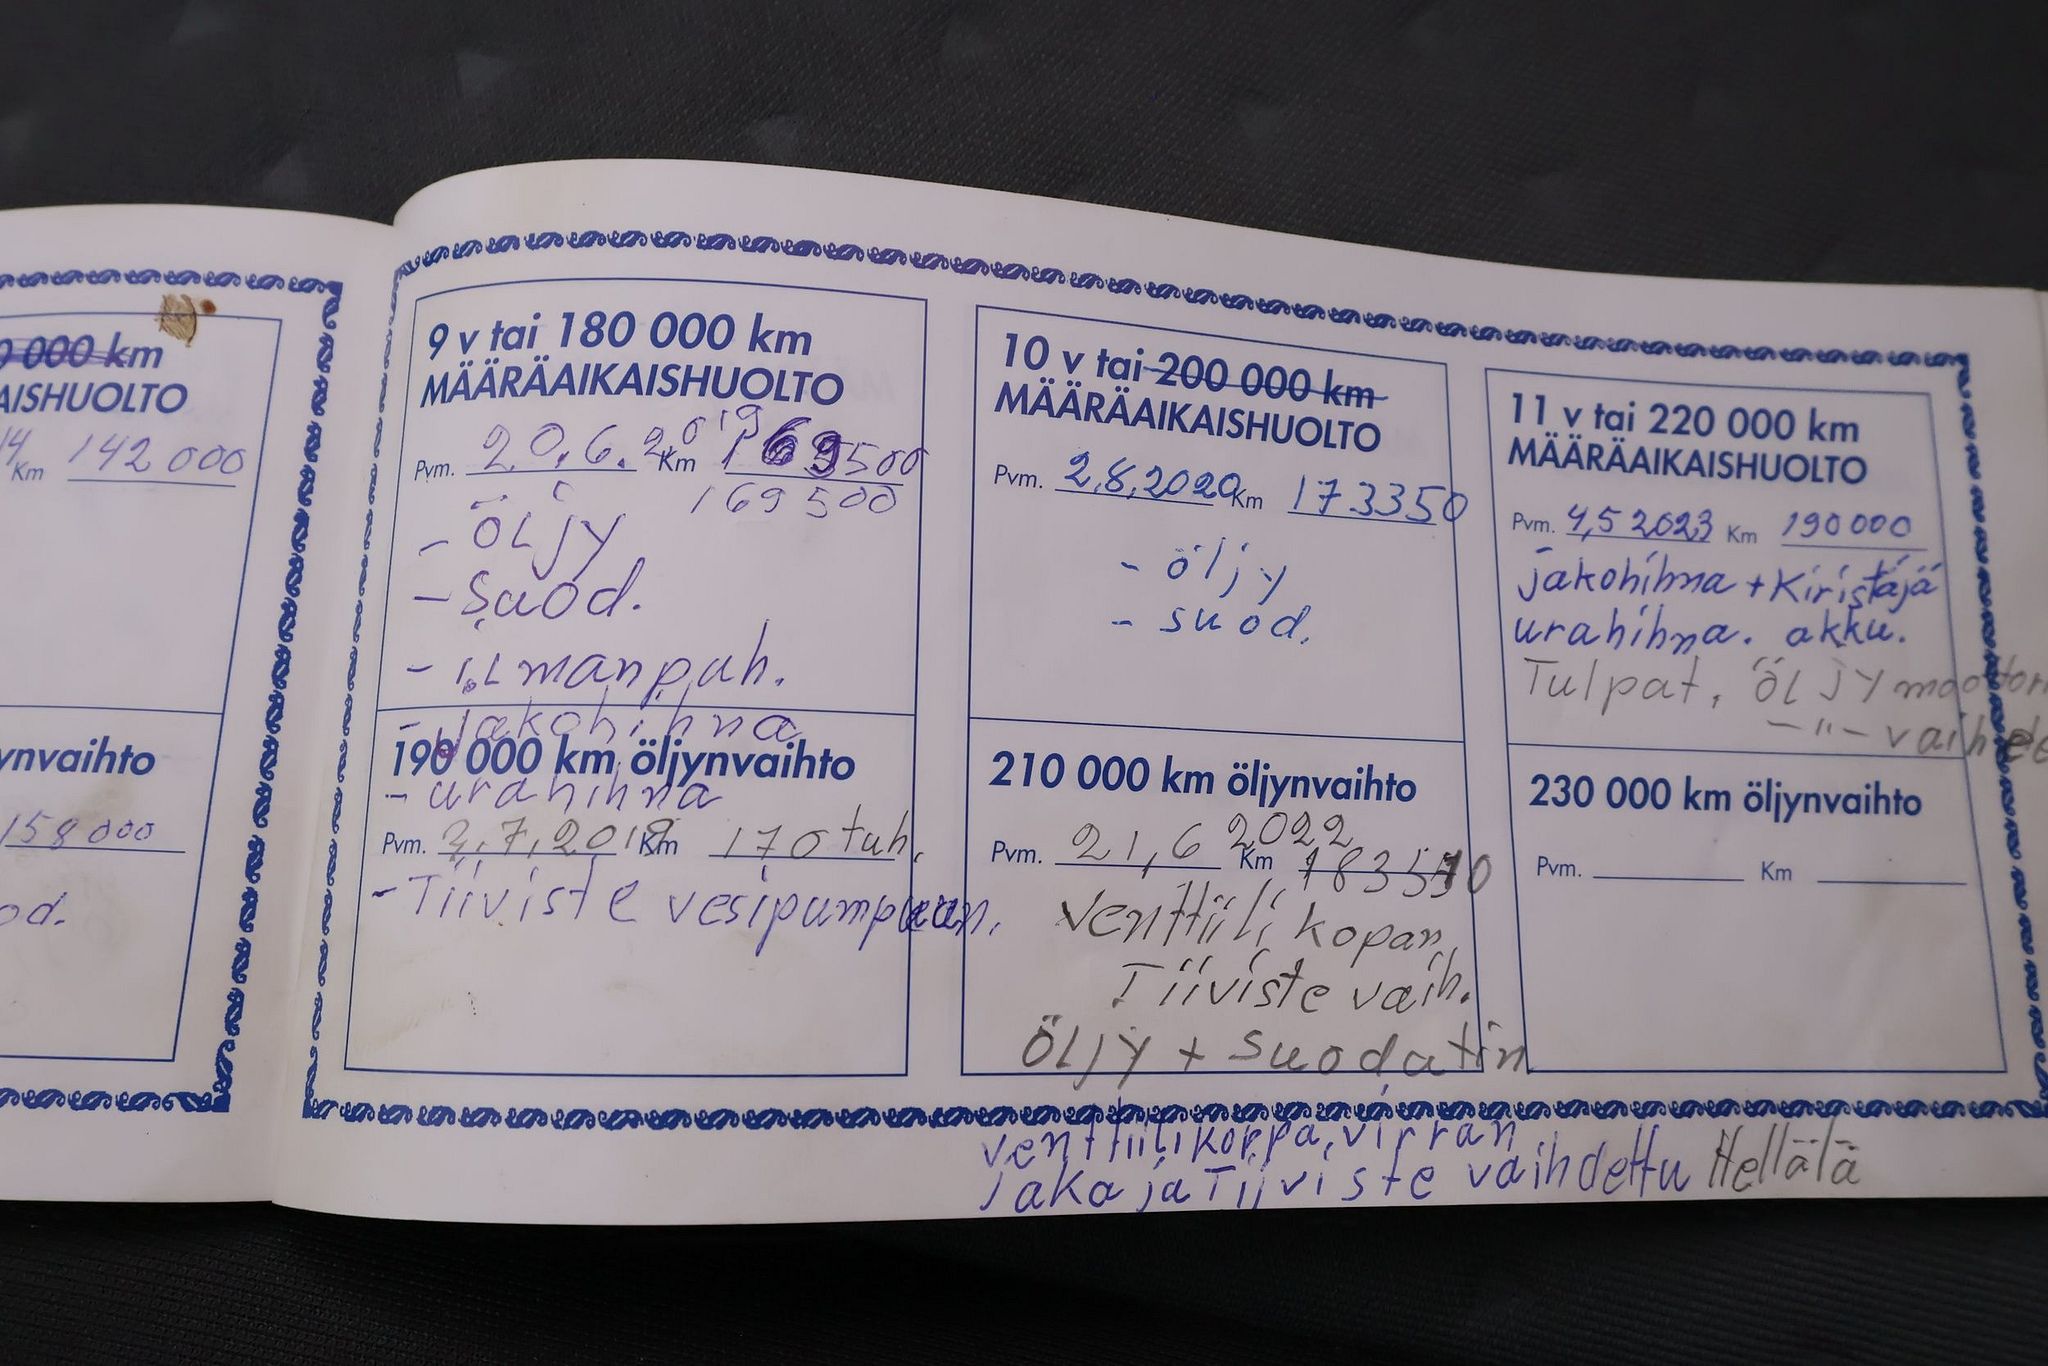 000 km
AISHUOLTO
14 Km 142 000
ynvaihto
158 000
od.
9 v tai 180 000 km
MÄÄRÄAIKAISHUOLTO
Pvm. 20.6.2019 Km 169500
169 500
- öljy
- suod.
- ilmanpuh.
- jakohihna
190 000 km öljynvaihto
- urahihna
Pvm. 2.7.2019 Km 170 tuh.
- Tiiviste vesipumpuun.
10 v tai 200 000 km
MÄÄRÄAIKAISHUOLTO
Pvm. 2.8.2020 Km 173350
- öljy
- suod.
210 000 km öljynvaihto
Pvm. 21,6 2022 Km
Venttiili kopan,
Tiiviste vaih.
Öljy + suodatin
venttiilikoppa, virran
jakaja Tiiviste vaihdettu Hellälä
11 v tai 220 000 km
MÄÄRÄAIKAISHUOLTO
Pvm. 4,5 2023 Km 190 000
jakohihna + Kiristäjä
urahihna. akku.
Tulpat, öljy moottori
- " - vaihde
230 000 km öljynvaihto
Pvm. Km